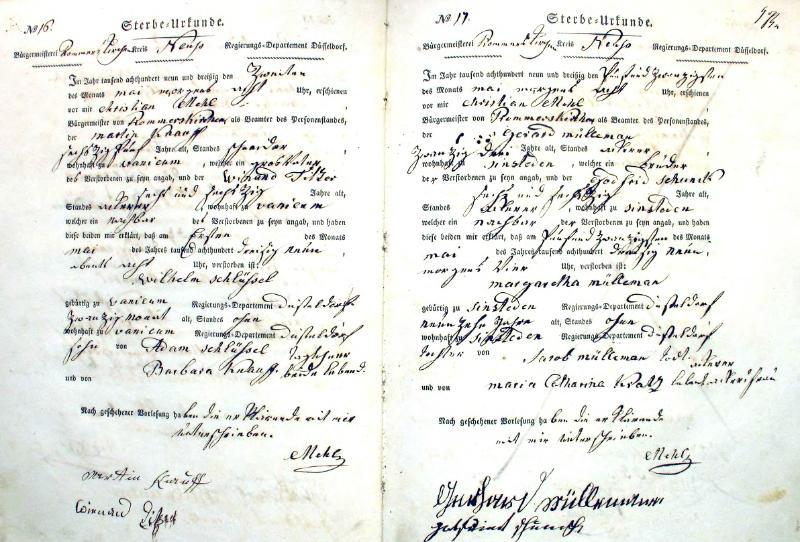 No 16.
Sterbe-Urkunde.
Bürgermeisterei Rommerskirchen Kreis Neuss Regierungs-Departement Düsseldorf.
Im Jahr tausend achthundert neun und dreißig den Zweiten
des Monats mai morgens acht Uhr, erschienen
vor mir christian Mehl
Bürgermeister von Rommerskirchen, als Beamter des Personenstandes,
der martin knauff
sechszig fünf Jahre alt, Standes schneider
wohnhaft zu vanicum, welcher ein grosvater
des Verstorbenen zu seyn angab, und der Wienand
sechs und sechszig Jahre alt,
Standes ackerer, wohnhaft zu vanicum
welcher ein nachbar des Verstorbenen zu seyn angab, und haben
diese beiden mir erklärt, daß am Ersten des Monats
mai des Jahres tausend achthundert dreisig neun,
abents acht Uhr, verstorben ist:
Wilhelm schlüssel
gebürtig zu vanicum Regierungs-Departement Düsseldorf
Zwanzig monat alt, Standes ohne
wohnhaft zu vanicum Regierungs-Departement Düsseldorf
sohn von Adam schlüssel taglehner
und von Barbara Knauff beide lebend.
Nach geschehener Vorlesung haben die erklärende mit mir
unterschrieben.
Mehl
martin knauff
Wienand
No 17.
Sterbe-Urkunde.
Bürgermeisterei Rommerskirchen Kreis Neuss Regierungs-Departement Düsseldorf.
Im Jahr tausend achthundert neun und dreißig den fünfundzwanzigsten
des Monats mai morgens acht Uhr, erschienen
vor mir christian Mehl
Bürgermeister von Rommerskirchen, als Beamter des Personenstandes,
der gerard mülleman
Zwanzig drei Jahre alt, Standes ackerer
wohnhaft zu sinsteden, welcher ein bruder
der Verstorbenen zu seyn angab, und der
sechs und sechszig Jahre alt,
Standes ackerer, wohnhaft zu sinsteden
welcher ein nachbar der Verstorbenen zu seyn angab, und haben
diese beiden mir erklärt, daß am fünfundzwanzigsten des Monats
mai des Jahres tausend achthundert dreisig neun,
morgens vier Uhr, verstorben ist:
margaretha mülleman
gebürtig zu sinsteden Regierungs-Departement Düsseldorf
neunzehn Jahre alt, Standes ohne
wohnhaft zu sinsteden Regierungs-Departement Düsseldorf
tochter von Jacob mülleman todt ackerer
und von maria Catharina Kratz lebend ackersfrau
Nach geschehener Vorlesung haben die erklärende
mit mir unterschrieben.
Mehl
Gerhard Müllemann